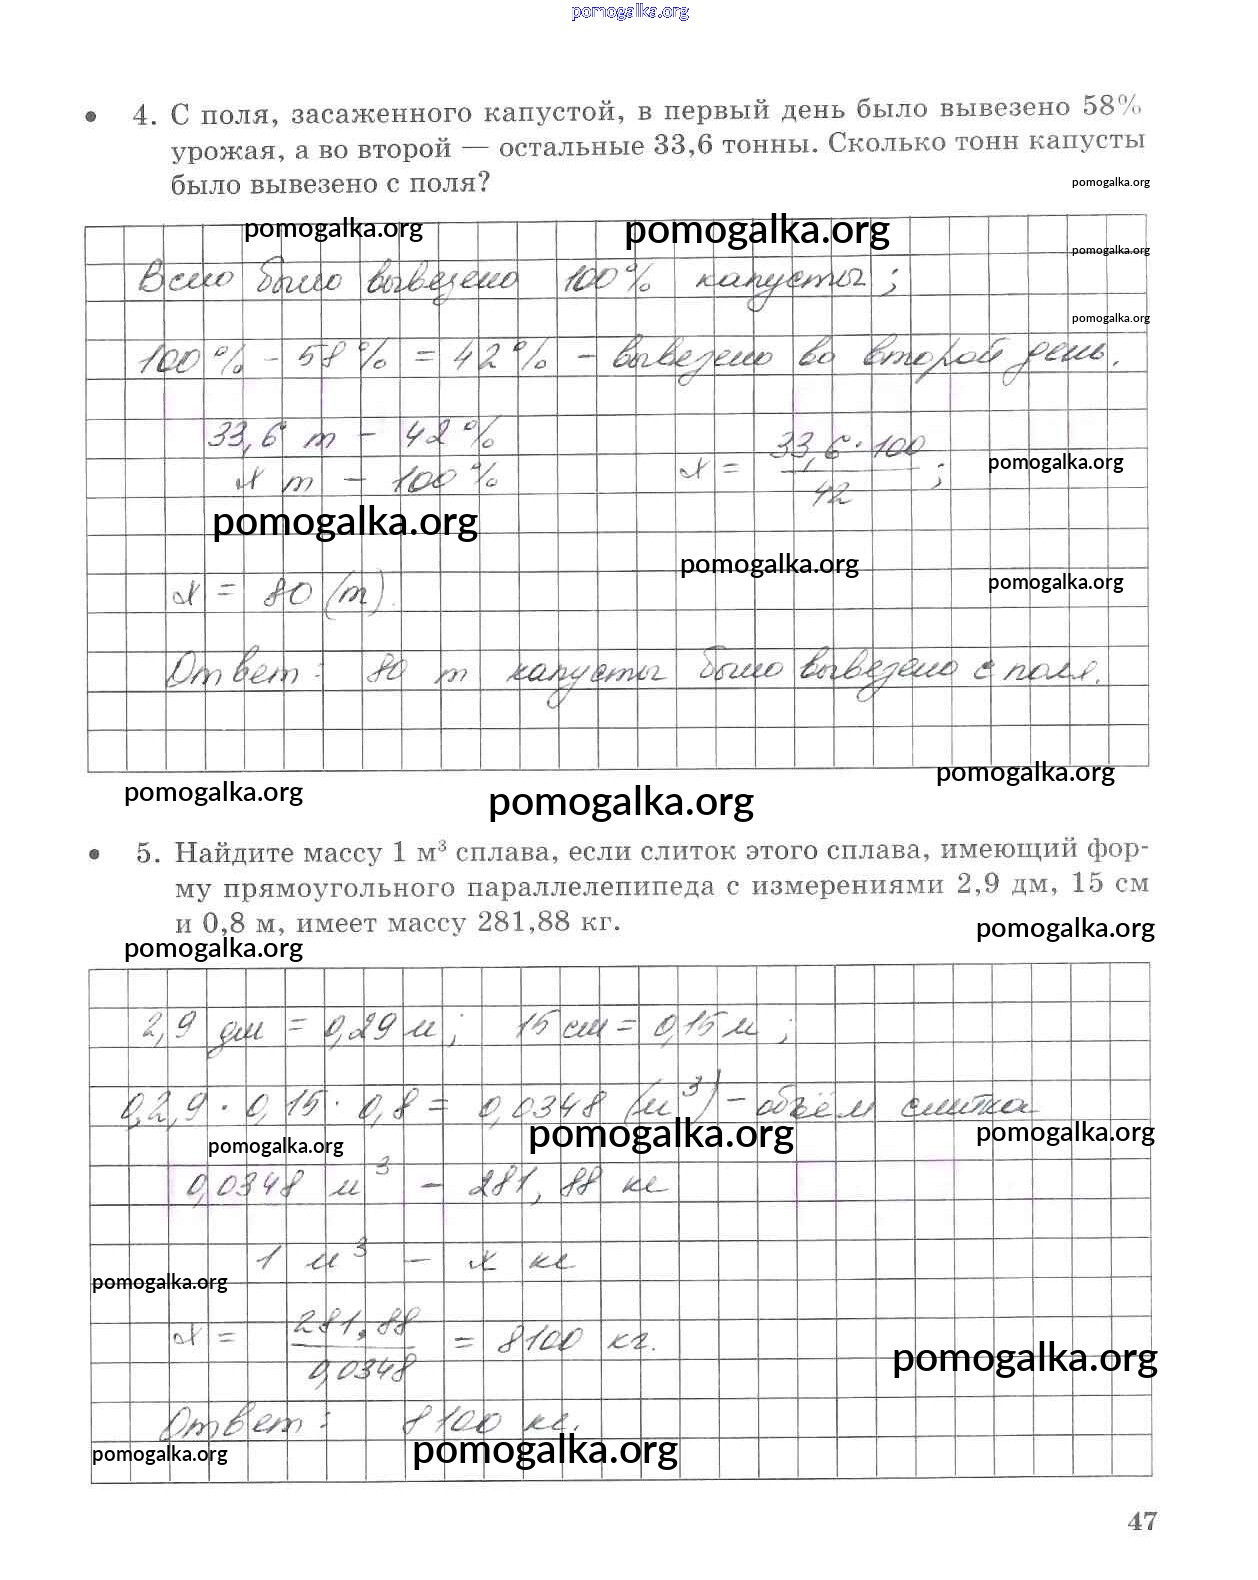 pomogalka.org
4. С поля, засаженного капустой, в первый день было вывезено 58%
урожая, а во второй — остальные 33,6 тонны. Сколько тонн капусты
было вывезено с поля?
pomogalka.org
pomogalka.org
pomogalka.org
pomogalka.org
Всего было вывезено 100% капусты;
pomogalka.org
100% - 58% = 42% - вывезено во второй день.
33,6 т - 42%
х т - 100%
х = 33,6 · 100 / 42 ;
pomogalka.org
pomogalka.org
pomogalka.org
pomogalka.org
х = 80 (т).
Ответ: 80 т капусты было вывезено с поля.
pomogalka.org
pomogalka.org
pomogalka.org
5. Найдите массу 1 м³ сплава, если слиток этого сплава, имеющий фор-
му прямоугольного параллелепипеда с измерениями 2,9 дм, 15 см
и 0,8 м, имеет массу 281,88 кг.
pomogalka.org
pomogalka.org
2,9 дм = 0,29 м; 15 см = 0,15 м;
0,2,9 · 0,15 · 0,8 = 0,0348 (м³) - объём слитка
pomogalka.org
pomogalka.org
pomogalka.org
0,0348 м³ - 281,88 кг
1 м³ - х кг
pomogalka.org
х = 281,88 / 0,0348 = 8100 кг.
pomogalka.org
Ответ: 8100 кг.
pomogalka.org
pomogalka.org
47